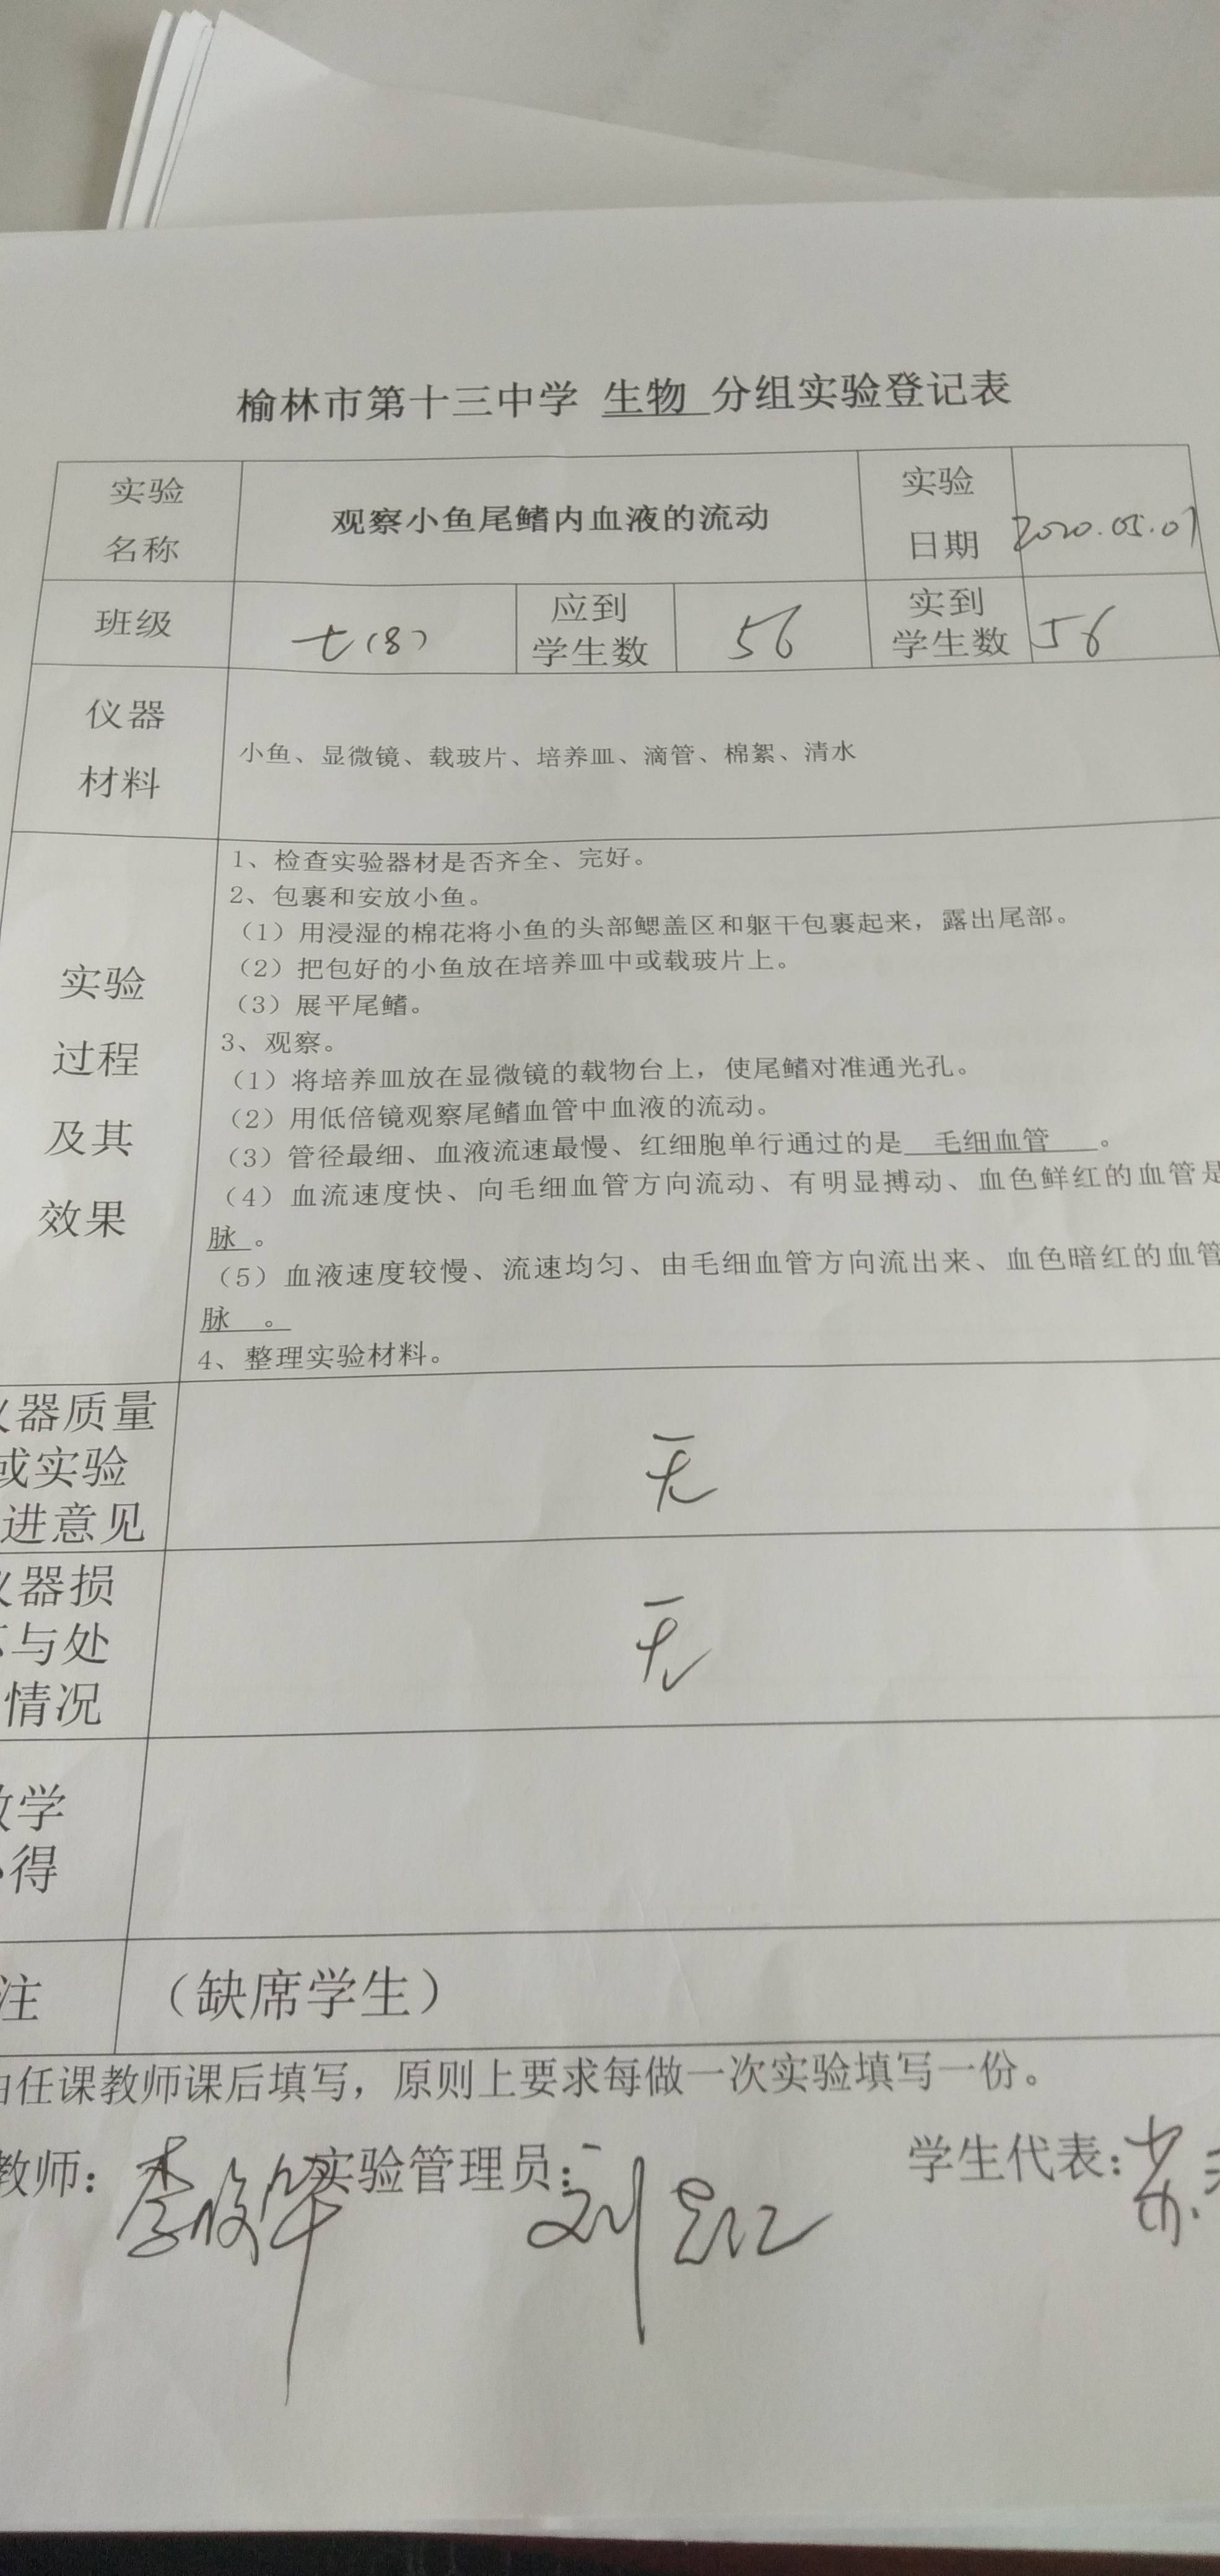 榆林市第十三中学 生物 分组实验登记表
实验名称 观察小鱼尾鳍内血液的流动 实验日期 2020.05.07
班级 七(8) 应到学生数 56 实到学生数 56
仪器材料 小鱼、显微镜、载玻片、培养皿、滴管、棉絮、清水
实验过程及其效果
1、检查实验器材是否齐全、完好。
2、包裹和安放小鱼。
（1）用浸湿的棉花将小鱼的头部鳃盖区和躯干包裹起来，露出尾部。
（2）把包好的小鱼放在培养皿中或载玻片上。
（3）展平尾鳍。
3、观察。
（1）将培养皿放在显微镜的载物台上，使尾鳍对准通光孔。
（2）用低倍镜观察尾鳍血管中血液的流动。
（3）管径最细、血液流速最慢、红细胞单行通过的是 毛细血管 。
（4）血流速度快、向毛细血管方向流动、有明显搏动、血色鲜红的血管是
脉 。
（5）血液速度较慢、流速均匀、由毛细血管方向流出来、血色暗红的血管
脉 。
4、整理实验材料。
器质量
或实验
进意见
无
器损
与处
情况
无
学
得
注 （缺席学生）
任课教师课后填写，原则上要求每做一次实验填写一份。
教师：李 实验管理员：刘 学生代表：苏